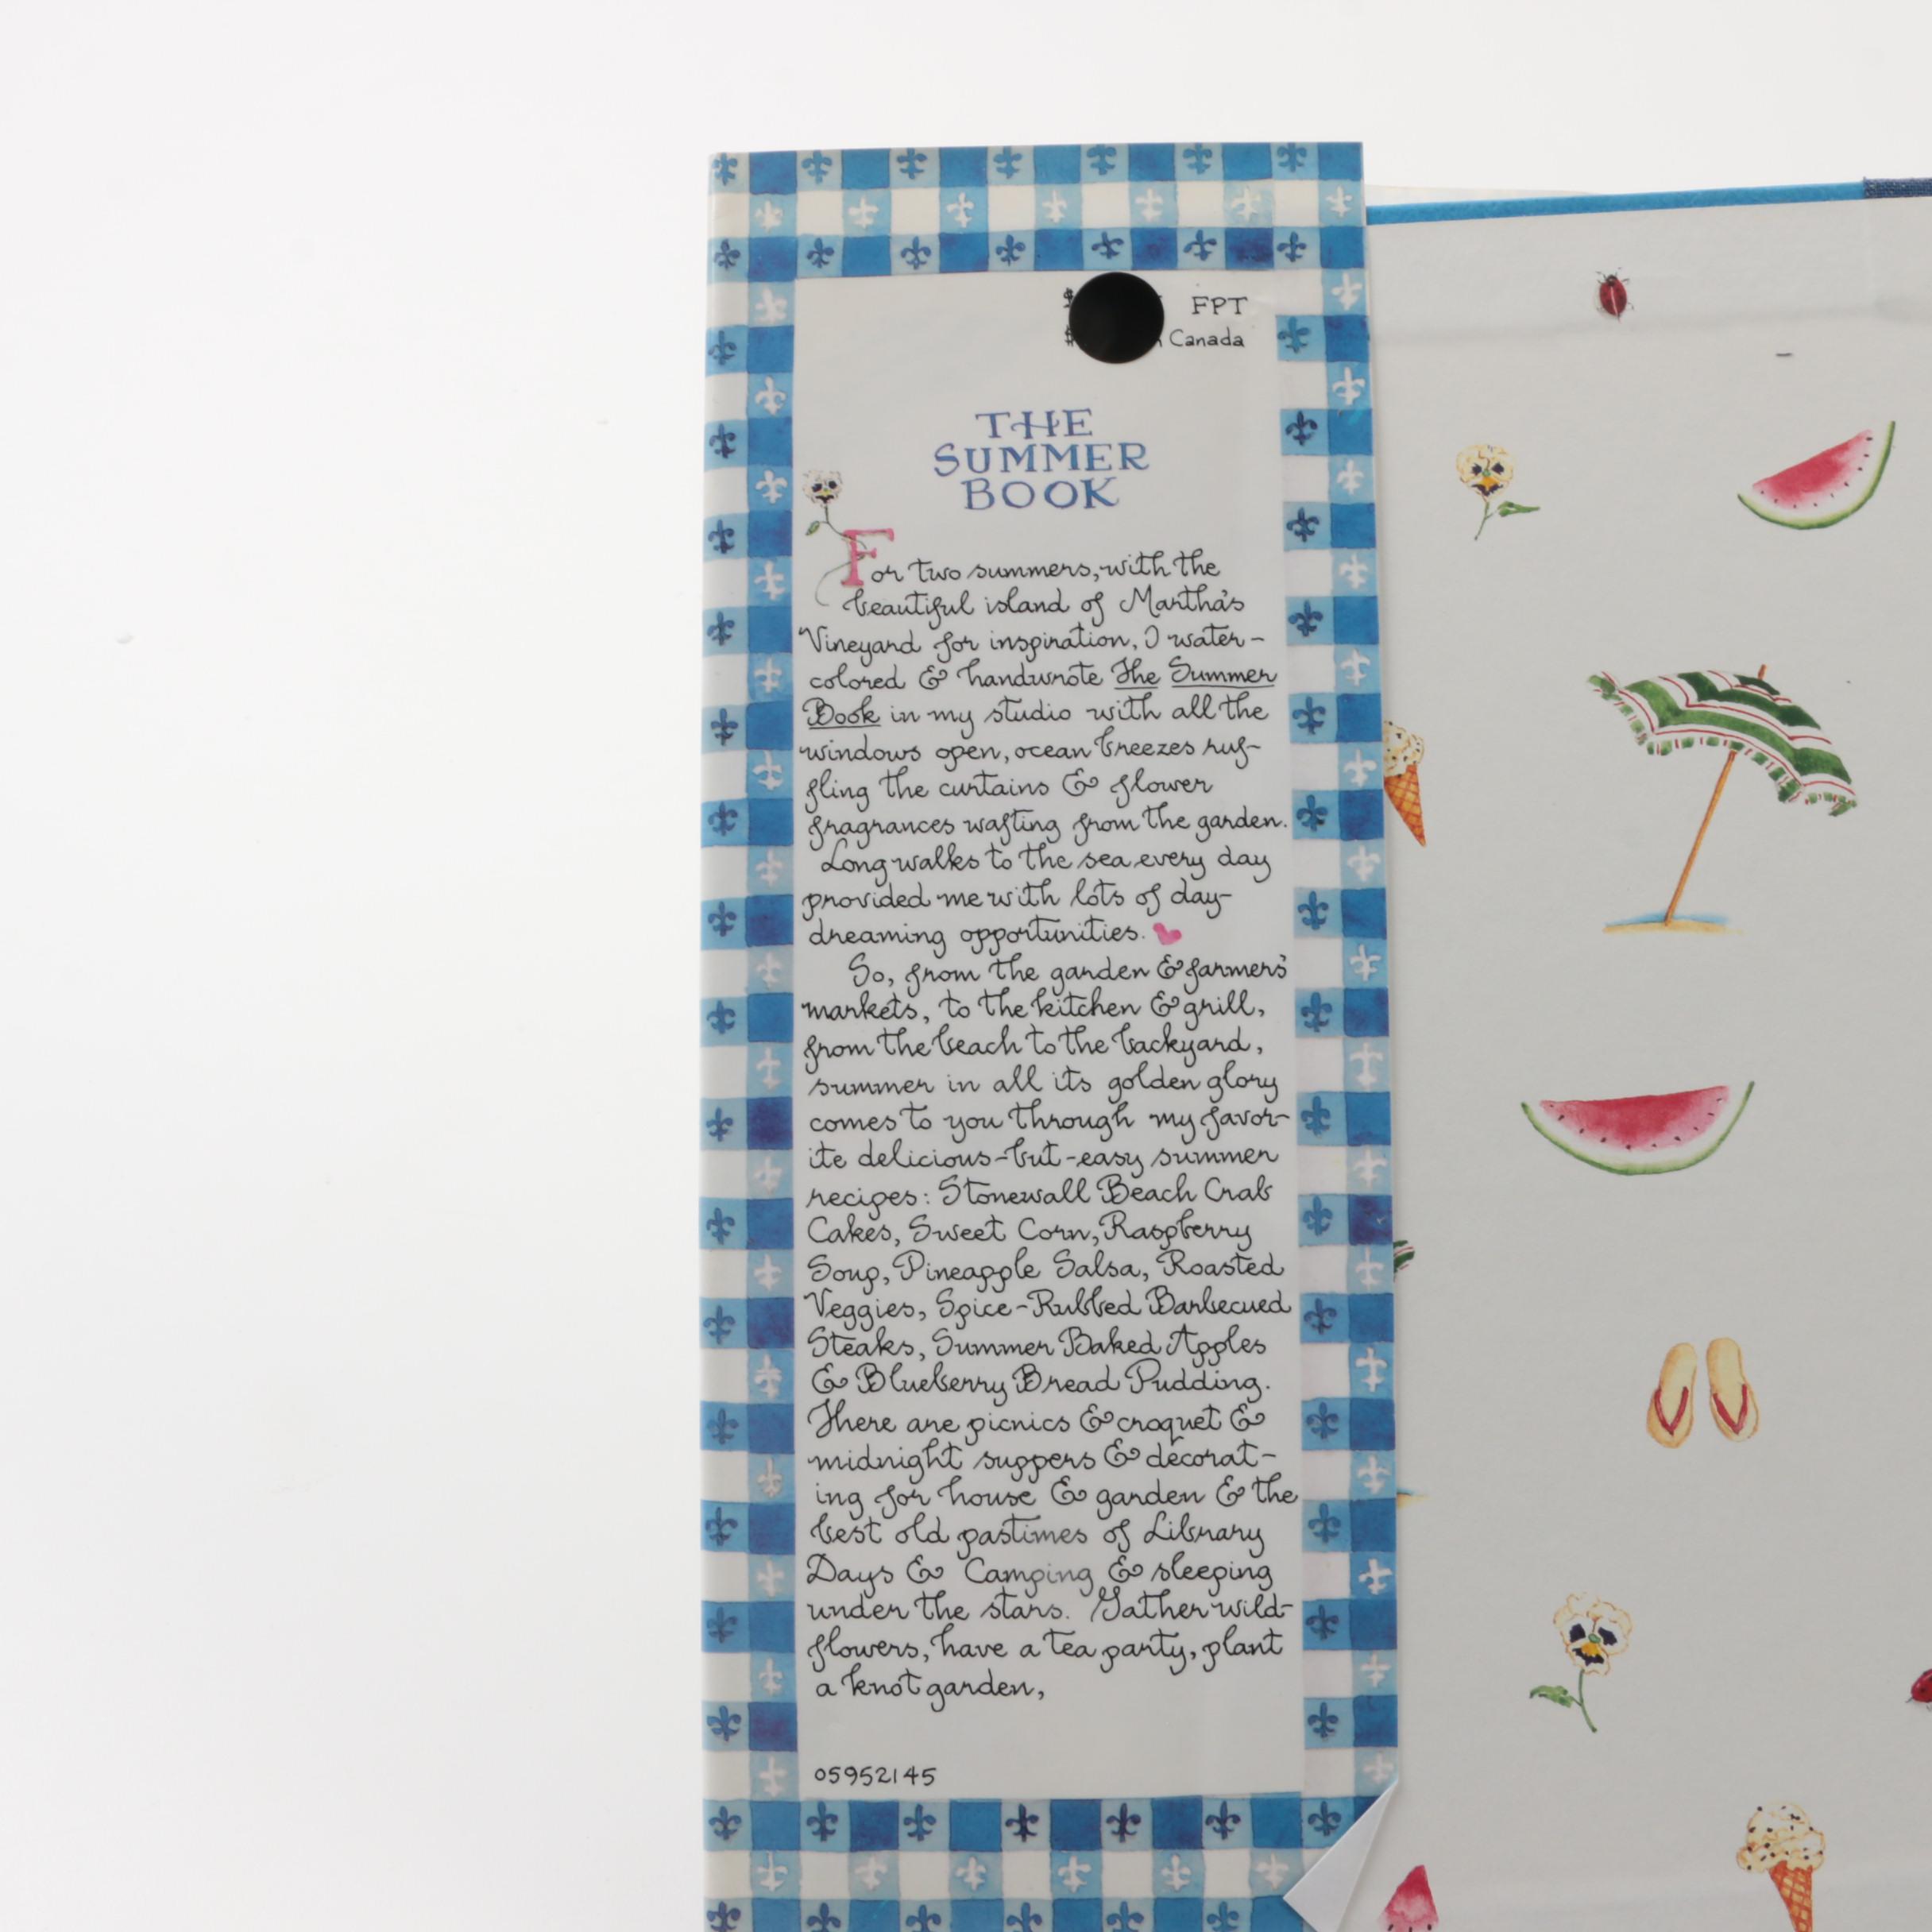 $ FPT
$ Canada
THE
SUMMER
BOOK
For two summers, with the
beautiful island of Martha's
Vineyard for inspiration, I water-
colored & handwrote The Summer
Book in my studio with all the
windows open, ocean breezes ruf-
fling the curtains & flower
fragrances wafting from the garden.
Long walks to the sea every day
provided me with lots of day-
dreaming opportunities.
So, from the garden & farmers'
markets, to the kitchen & grill,
from the beach to the backyard,
summer in all its golden glory
comes to you through my favor-
ite delicious-but-easy summer
recipes: Stonewall Beach Crab
Cakes, Sweet Corn, Raspberry
Soup, Pineapple Salsa, Roasted
Veggies, Spice-Rubbed Barbecued
Steaks, Summer Baked Apples
& Blueberry Bread Pudding.
There are picnics & croquet &
midnight suppers & decorat-
ing for house & garden & the
best old pastimes of Library
Days & Camping & sleeping
under the stars. Gather wild-
flowers, have a tea party, plant
a knot garden,
05952145